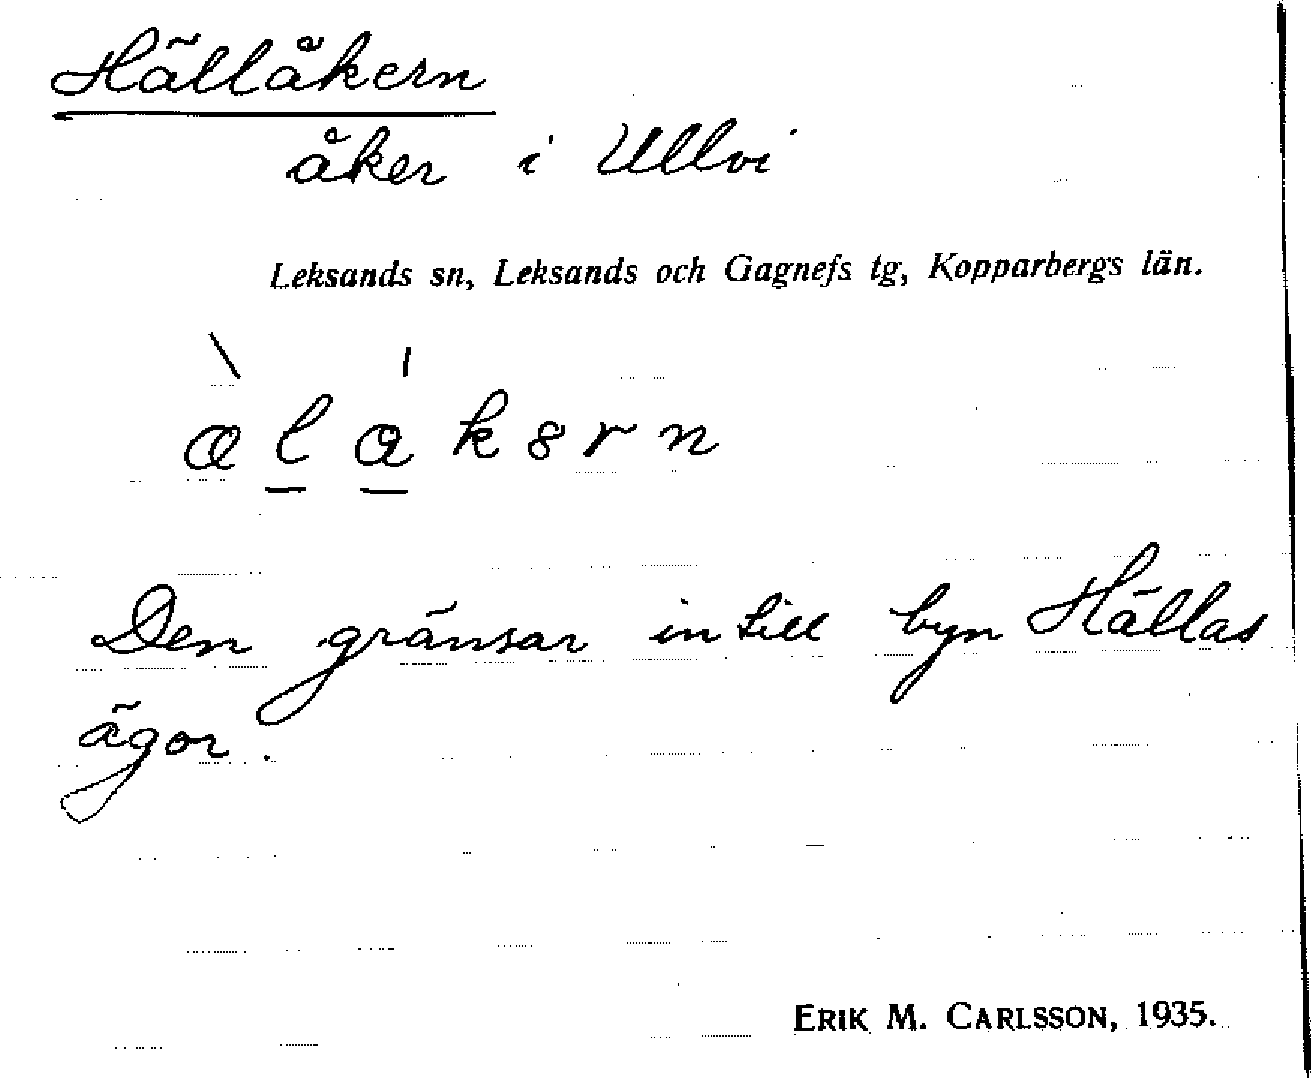 Hällåkern
åker i Ullvi
Leksands sn, Leksands och Gagnefs tg, Kopparbergs län.
Den gränsar intill byn Hällas
ägor.
ERIK M. CARLSSON, 1935.